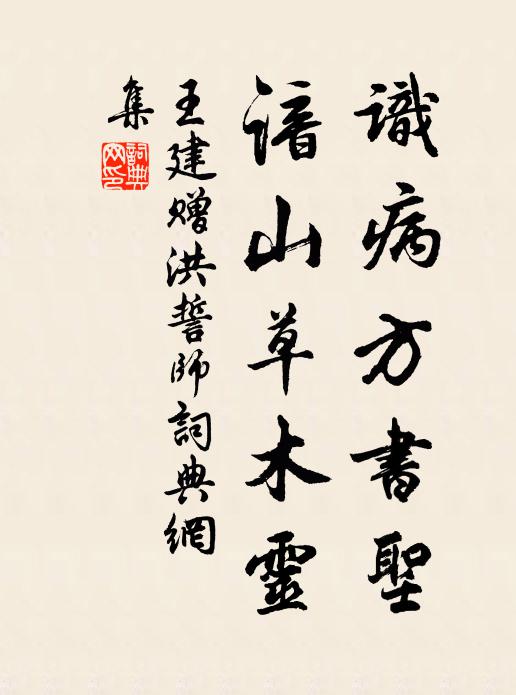 識病方書聖
諳山草木靈
王建贈洪誓師詞典網
集
詞典網印